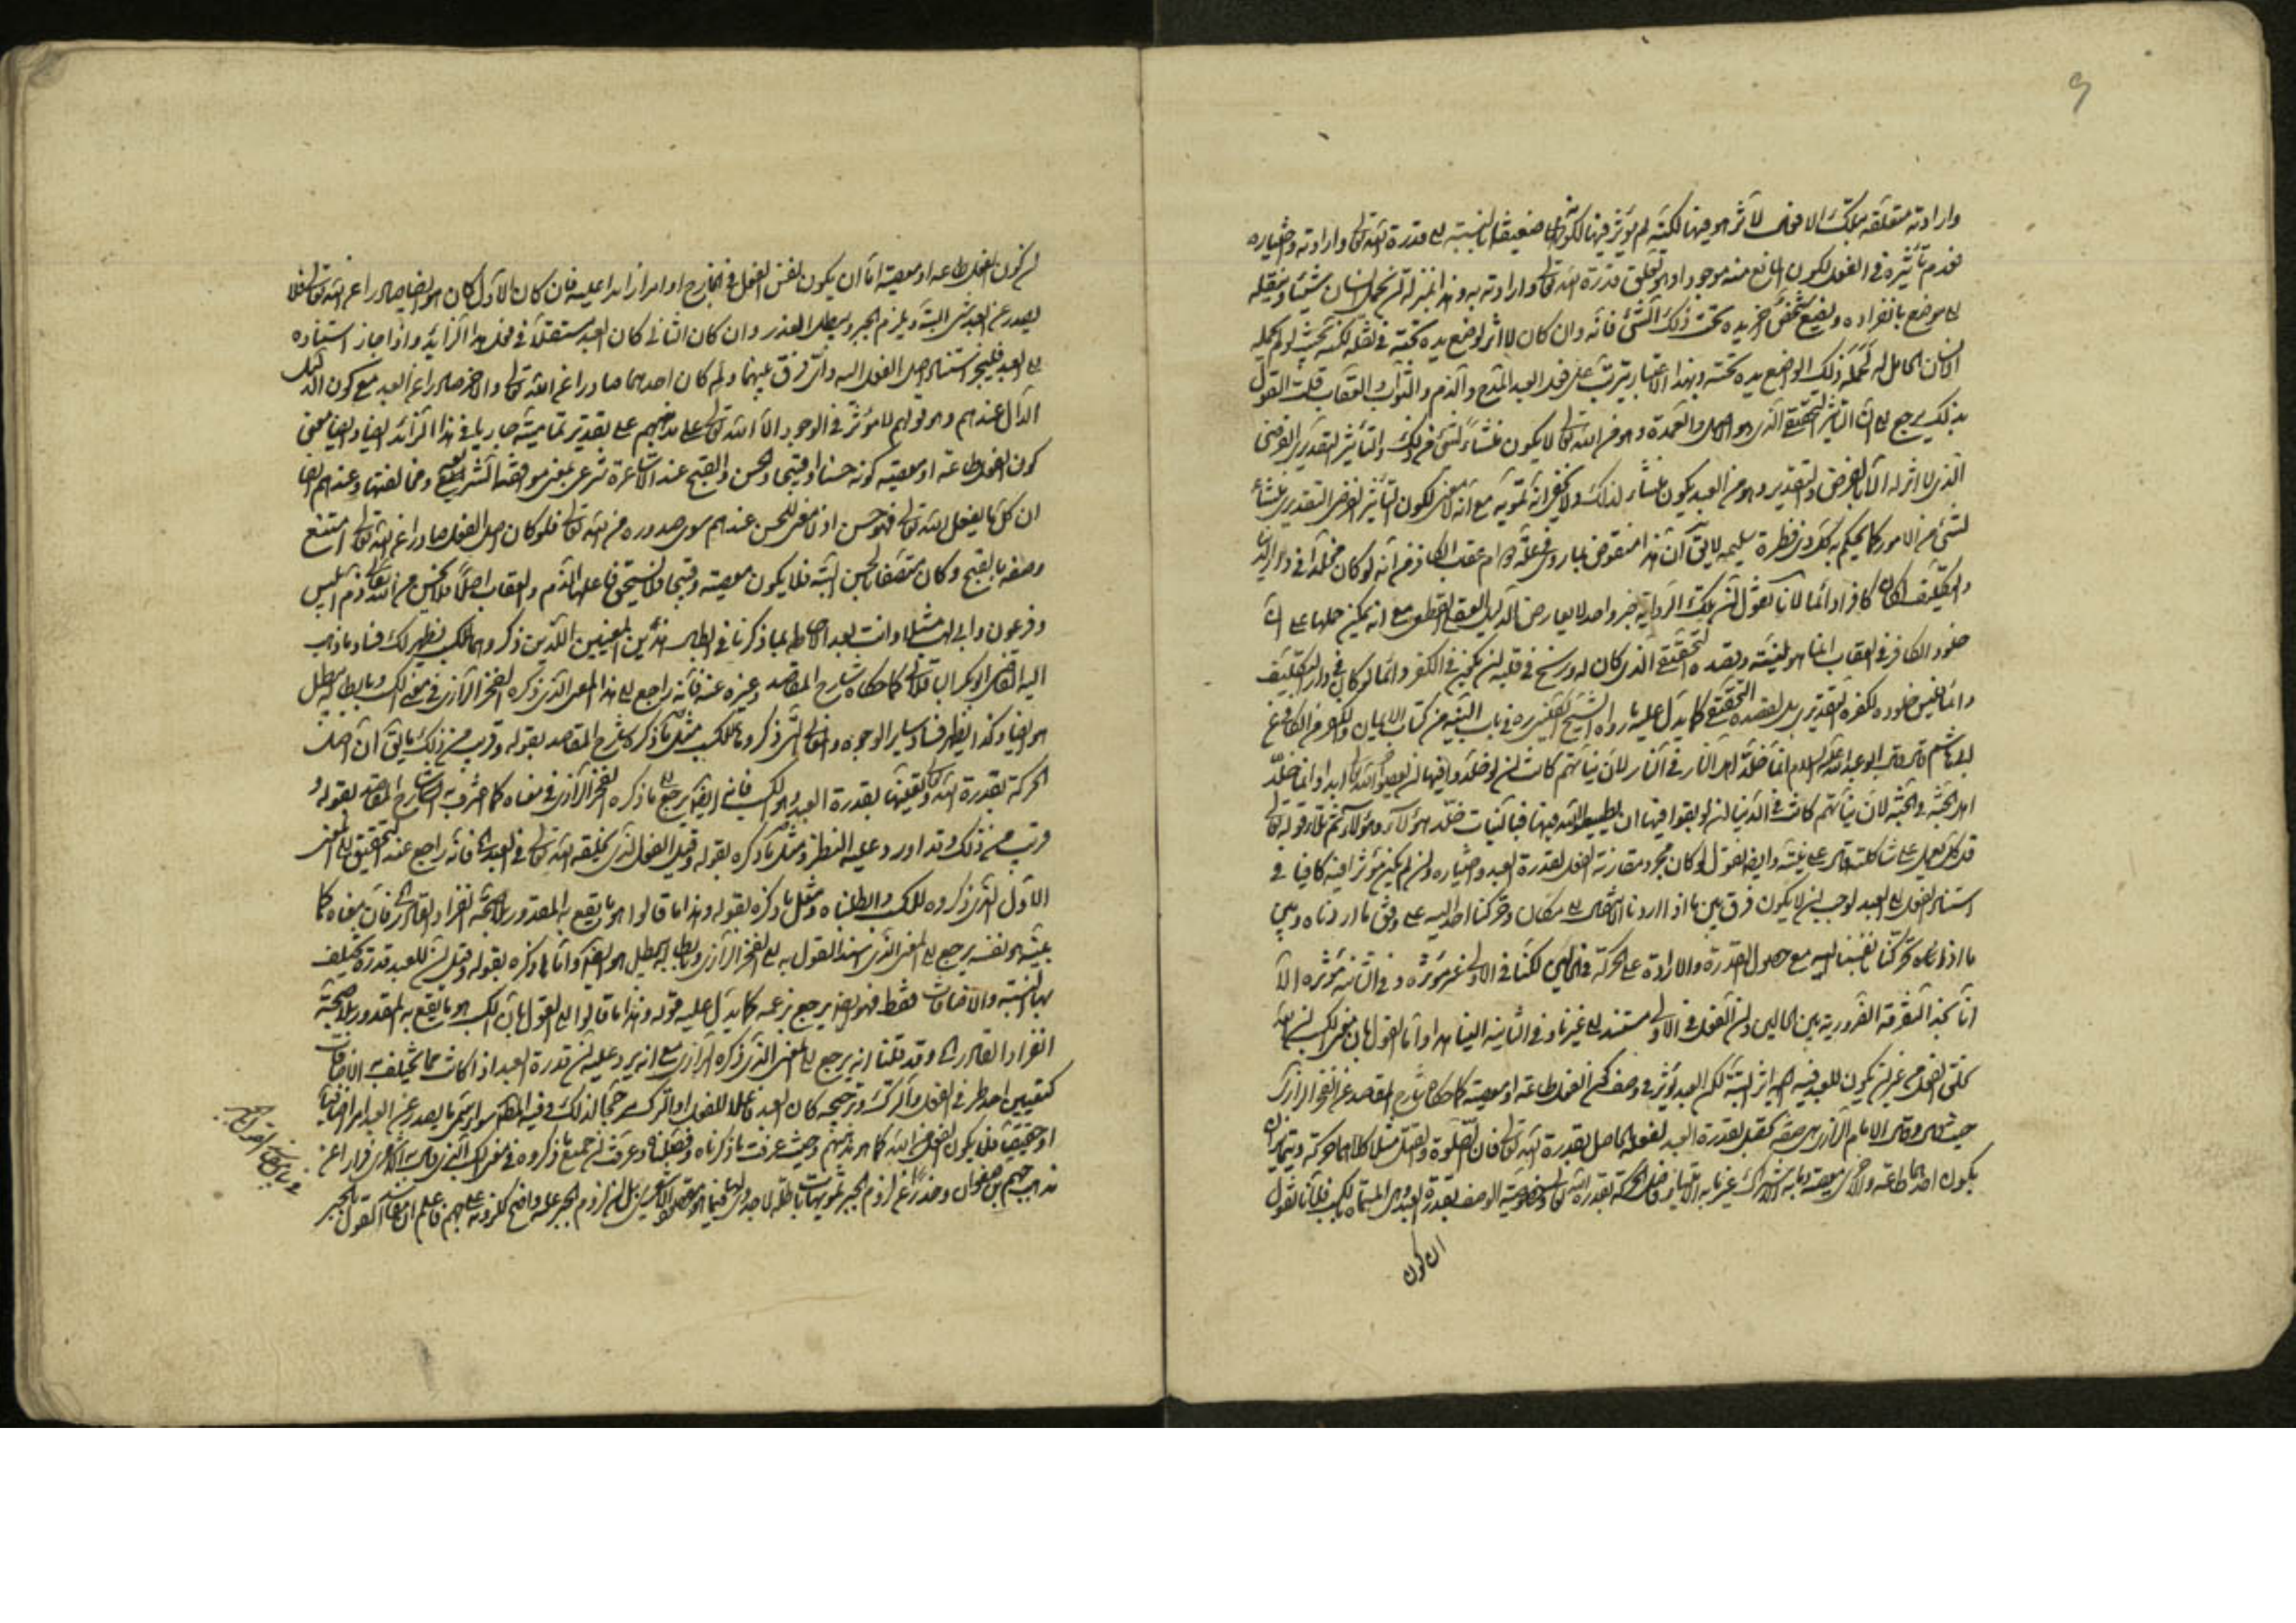 وارادته متعلقة بتلك الافعال لأثر هو فيها لكنه لم يؤثر فيها لكونها ضعيفة بالنسبة الى قدرة الله تعالى وارادته واختياره
فعدم تأثيره في الفعل لكون المانع منه موجودا وهو تعلق قدرة الله تعالى وارادته به وهذا بمنزلة ان يحمل انسان شيئا وينقله
الى موضع بانفراده ويضع شخص اخر يده تحت ذلك الشئ فانه وان كان لا اثر لوضع يده تحته في نقله لكنه بحيث لو لم يحمله
الانسان الحامل له لحمله ذلك الواضع يده تحته وبهذا الاعتبار يترتب على فعل العبد المدح والذم والثواب والعقاب قلت القول
بذلك يرجع الى ان التأثير التحقيقي الذي هو الاصل والعمدة وهو من الله تعالى لا يكون منشاء لشئ من ذلك والتأثير التقديري الفرضي
الذي لا اثر له الا بالفرض والتقدير وهو من العبد يكون منشاء لذلك ولا يخفى انه تمويه مع انه لا معنى لكون التأثير الفرضي التقديري منشاء
لشئ من الامور كما يحكم به كل ذي فطرة سليمة لا يقال ان هذا منقوض بما روي في علة دوام عقاب الكافر من انه لو كان مخلدا في دار الدنيا
والتكليف لكان كافرا دائما لانا نقول ان تلك الرواية خبر واحد لا يعارض الدليل العقلي القطعي مع انه يمكن حملها على ان
خلود الكافر في العقاب انما هو لنيته وقصده التحقيقي الذي كان له ورسخ في قلبه ان يكون في الكفر دائما لو كان في دار التكليف
دائما فليس خلوده لكفره التقديري بل لقصده التحقيقي كما يدل عليه ما رواه الشيخ الكليني ره في باب النية من كتاب الايمان والكفر من الكافي عن
ابي هاشم قال قال ابو عبد الله عليه السلام انما خلد اهل النار في النار لان نياتهم كانت ان لو خلدوا فيها ان يعصوا الله تعالى ابدا وانما خلد
اهل الجنة في الجنة لان نياتهم كانت في الدنيا ان لو بقوا فيها ان يطيعوا الله فيها فبالنيات خلد هؤلاء وهؤلاء ثم تلا قوله تعالى
قل كل يعمل على شاكلته قال على نيته وايضا نقول لو كان مجرد مقارنة الفعل لقدرة العبد واختياره وان لم يكن مؤثرا فيه كافيا في
استناد الفعل الى العبد لوجب ان لا يكون فرق بين ما اذا اردنا الانتقال الى مكان وحركنا احد اليه على وفق ما اردناه وبين
ما اذا تحركنا بنفسنا اليه مع حصول القدرة والارادة على الحركة في الحالين لكنها في الاولى غير مؤثرة وفي الثانية مؤثرة الا
انا نجد التفرقة الضرورية بين الحالين وان الفعل في الاولى مستند الى غيرنا وفي الثانية الينا هذا واما القول بان معنى الكسب ان الله
يخلق الفعل من غير ان يكون للعبد فيه اثر البتة لكن العبد يؤثر في وصف كون الفعل طاعة او معصية كما حكاه شارح المقاصد عن الفخر الرازي
حيث قال وقال الامام الرازي هي صفة تحصل بقدرة العبد لفعله الحاصل بقدرة الله تعالى فان الصلوة والقتل مثلا كلاهما حركة ويتمايزان
بكون احدهما طاعة والاخرى معصية وما به الاشتراك غير ما به الامتياز فاصل الحركة بقدرة الله تعالى وخصوصية الوصف بقدرة العبد وهي المسماة بالكسب فلانا نقول
ان كون
ان كون الفعل طاعة او معصية اما ان يكون نفس الفعل في الخارج او امرا زائدا عليه فان كان الاول كان هو ايضا صادرا عن الله تعالى فلا
يصدر عن العبد شئ البتة ويلزم الجبر ويبطل العذر وان كان الثاني كان العبد مستقلا في فعل هذا الزائد واذا جاز استناده
الى العبد فليجز استناد اصل الفعل اليه واي فرق بينهما ولم كان احدهما صادرا عن الله تعالى والاخر صادرا عن العبد مع كون الدليل
الدال عندهم وهو قولهم لا مؤثر في الوجود الا الله تعالى على مذهبهم على تقدير تماميته جاريا في هذا الزائد ايضا وايضا معنى
كون الفعل طاعة او معصية كونه حسنا او قبيحا والحسن والقبح عند الاشاعرة شرعي بمعنى موافقة الشريعة ومخالفتها وعندهم ايضا
ان كل ما يفعل الله تعالى فهو حسن اذ لا معنى للحسن عندهم سوى صدوره من الله تعالى فلو كان اصل الفعل صادرا عن الله تعالى امتنع
وصفه بالقبح وكان متصفا بالحسن البتة فلا يكون معصية وقبيحا فلا يستحق فاعلها الذم والعقاب اصلا فلا يحسن من الله تعالى ذم ابليس
وفرعون وابي لهب مثلا وانت بعد الاحاطة بما ذكرنا في ابطال هذين المعنيين اللذين ذكروهما للكسب يظهر لك فساد ما ذهب
اليه القاضي ابو بكر الباقلاني كما حكاه شارح المقاصد وغيره عنه فانه راجع الى هذا المعنى الذي ذكره الفخر الرازي في معنى الكسب وبابطاله يبطل
هو ايضا وكذا يظهر فساد ساير الوجوه والمعاني التي ذكروها للكسب مثل ما ذكره شارح المقاصد بقوله وقريب من ذلك ما يقال ان اصل
الحركة بقدرة الله وتعيينها بقدرة العبد وهو الكسب فانه ايضا يرجع الى ما ذكره الفخر الرازي في معناه كما اعترف به شارح المقاصد بقوله و
قريب من ذلك وقد اورد عليه النظر ومثل ما ذكره بقوله وقيل الفعل الذي يخلقه الله تعالى في العبد فانه راجع عند التحقيق الى المعنى
الاول الذي ذكروه للكسب وابطلناه ومثل ما ذكره بقوله وهذا ما قالوا هو ما يقع به المقدور بلا صحة انفراد القادر به فان معناه كما
بعينه هو نفسه يرجع الى المعنى الذي اسند القول به الى الفخر الرازي وبابطاله يبطل هو ايضا واما ما ذكره بقوله وقيل ان للعبد قدرة تختلف
بها النسبة والاضافات فقط فهو ايضا يرجع بزعمه كما يدل عليه قوله وهذا ما قالوا الى القول بان الكسب هو ما يقع به المقدور بلا صحة
انفراد القادر به وقد قلنا انه يرجع الى المعنى الذي ذكره الرازي مع انه يرد عليه ان قدرة العبد اذا كانت مما تختلف به الاضافات
كتعيين احد طرفي الفعل والترك وترجيحه كان العبد فاعلا للفعل او الترك مرجحا لذلك
او حقيقيا فلا يكون الفعل من الله كما هو مذهبهم وحيث عرفت ما ذكرناه وفصلناه وعرفت ان جميع ما ذكروه في معنى الكسب الذي قال به الاشعري فرارا عن
مذهب جهم بن صفوان وحذرا عن لزوم الجبر تمويهات باطلة لا جدوى لها بل ان لزوم الجبر عليه واضح فاعلم ان مفاسد القول بالجبر